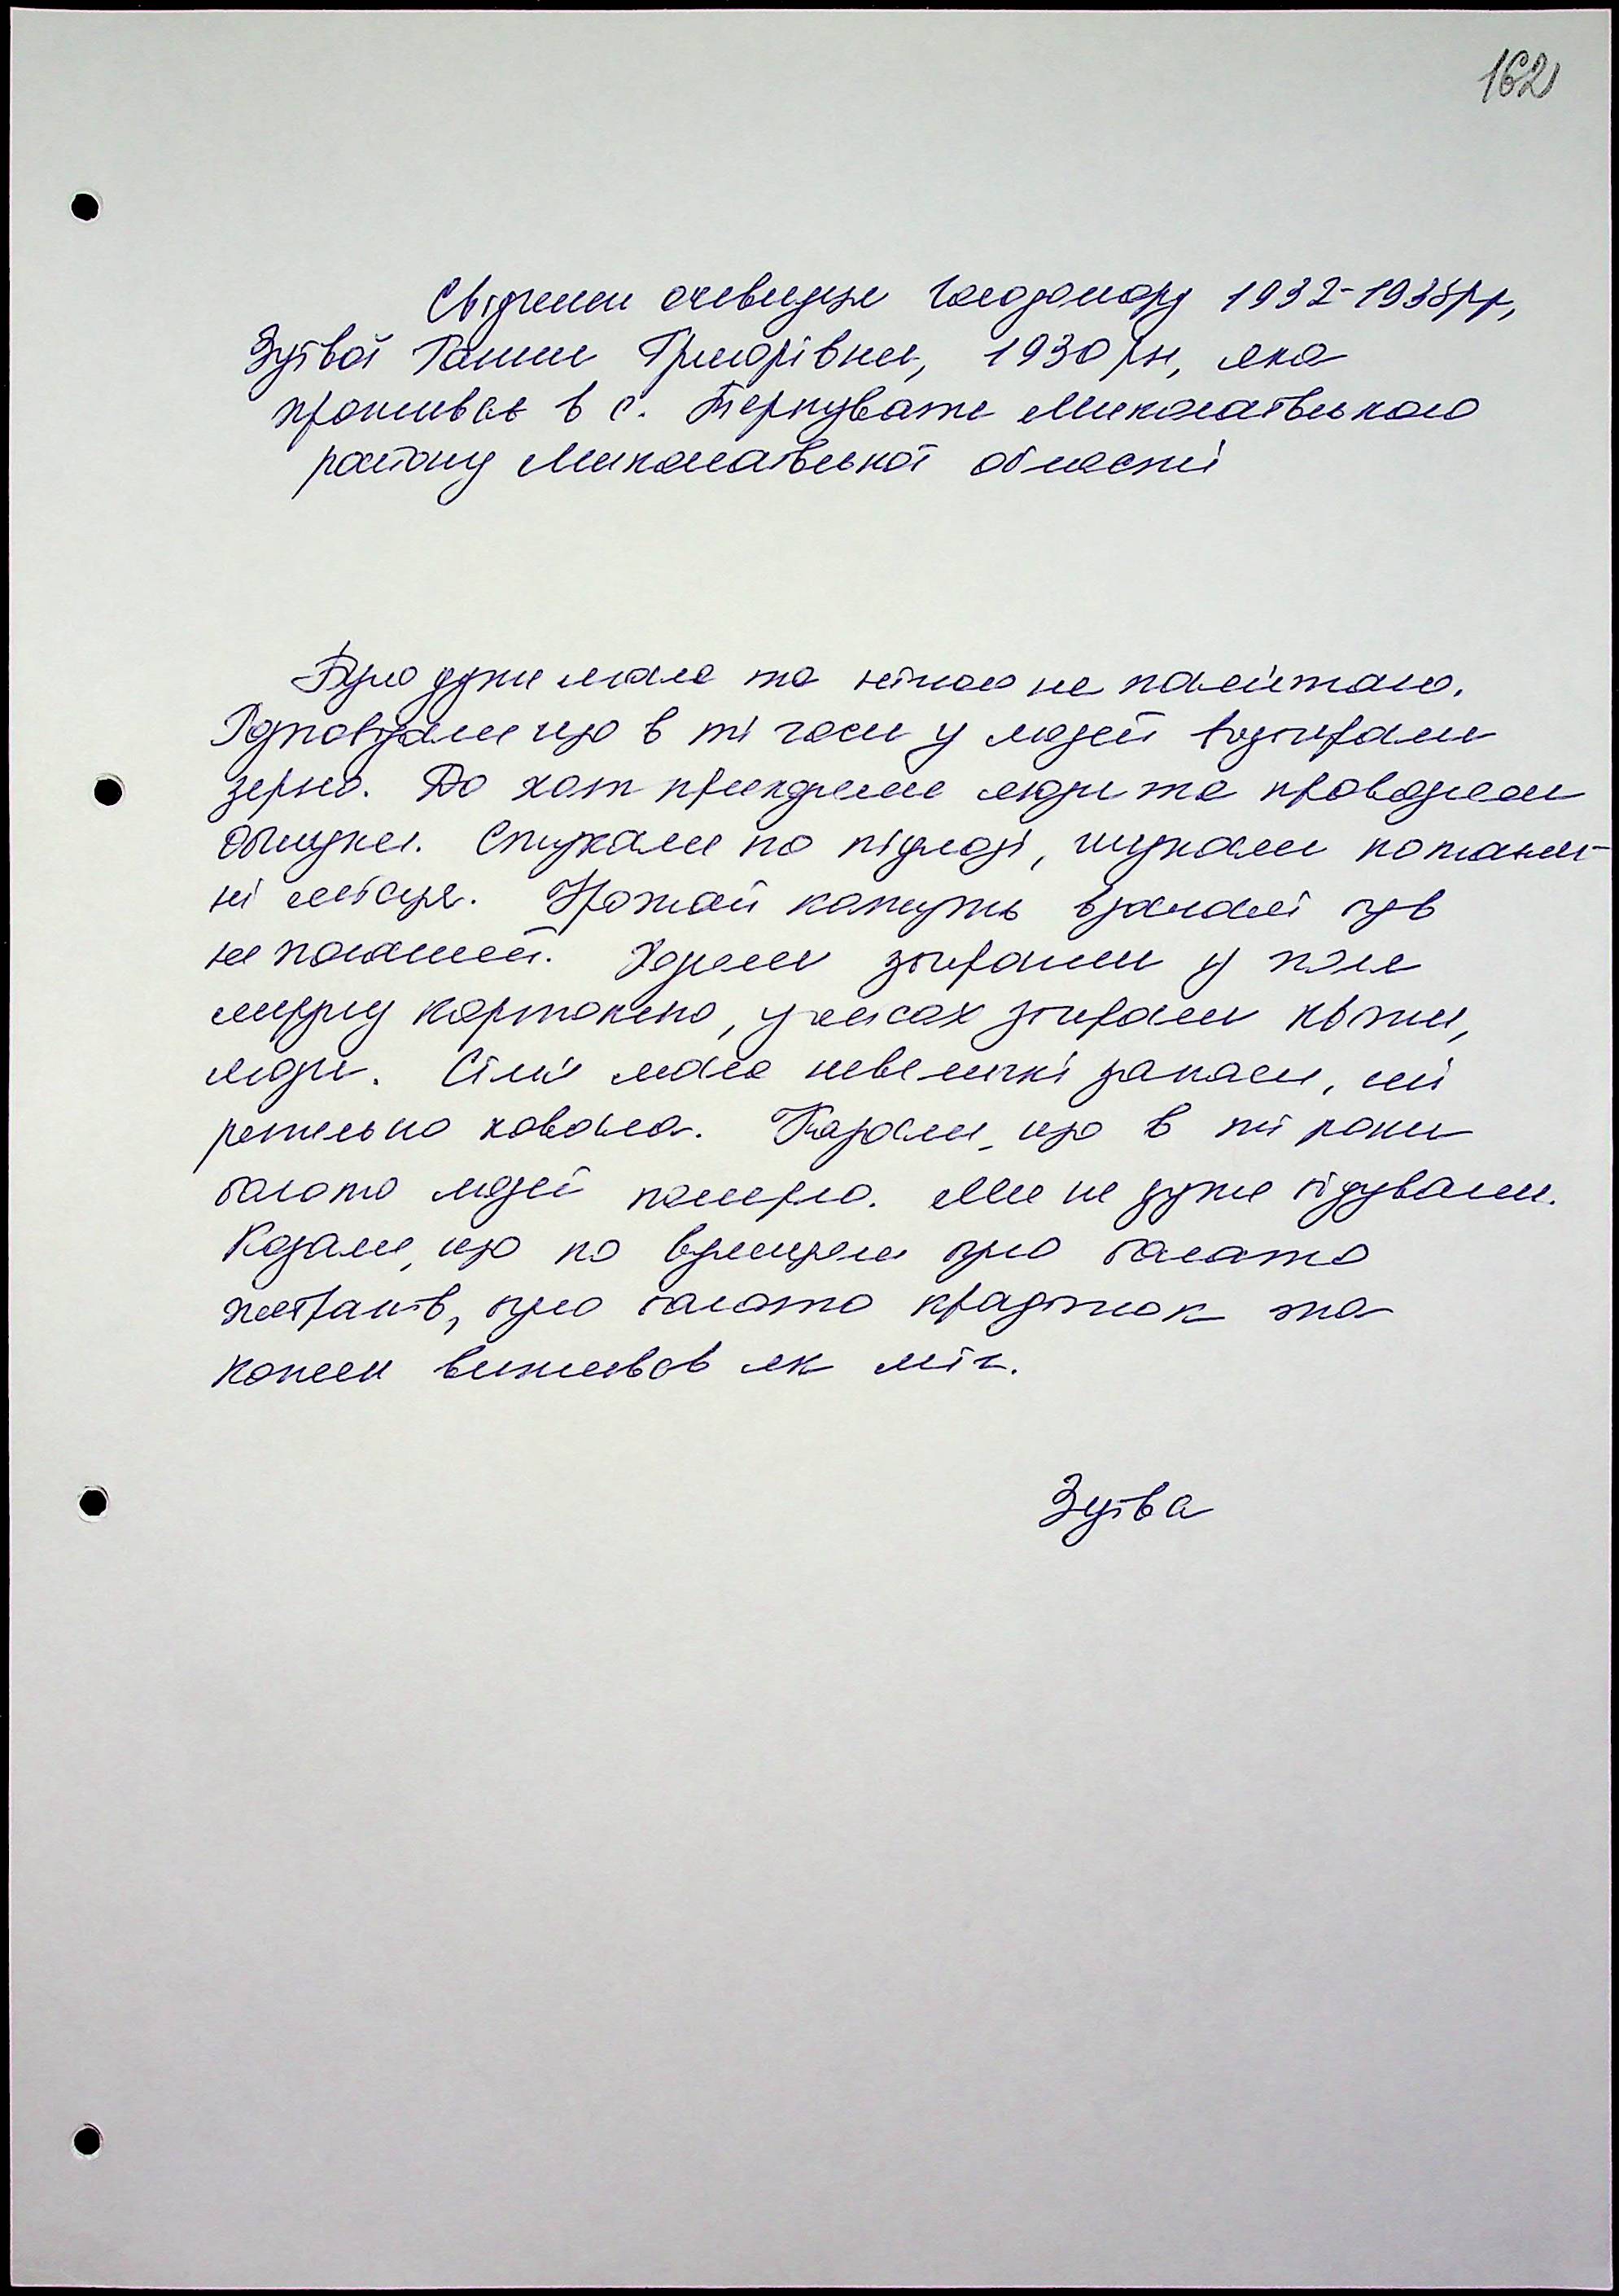 162
Свідчення очевидця Голодомору 1932-1933рр,
Зуївої Ганни Григорівни, 1930 рн, яка
проживає в с. Тернувате Миколаївського
району Миколаївської області
Була дуже мала та нічого не пам'ятаю.
Розповідали що в ті часи у людей відбирали
зерно. До хат приходили люди та проводили
обшуки. Стукали по підлозі, шукали потаєм-
ні місця. Урожай кажуть взагалі був
не поганий. Ходили збирали у поле
мерзлу картоплю, у лісах збирали
Сім'я мала невеличкі запаси, які
ретельно ховала. Казали, що в ті роки
багато людей померло. Ми не дуже бідували.
Казали, що по вулицям було багато
жебраків, було багато крадіжок та
кожен виживав як міг.
Зуїва